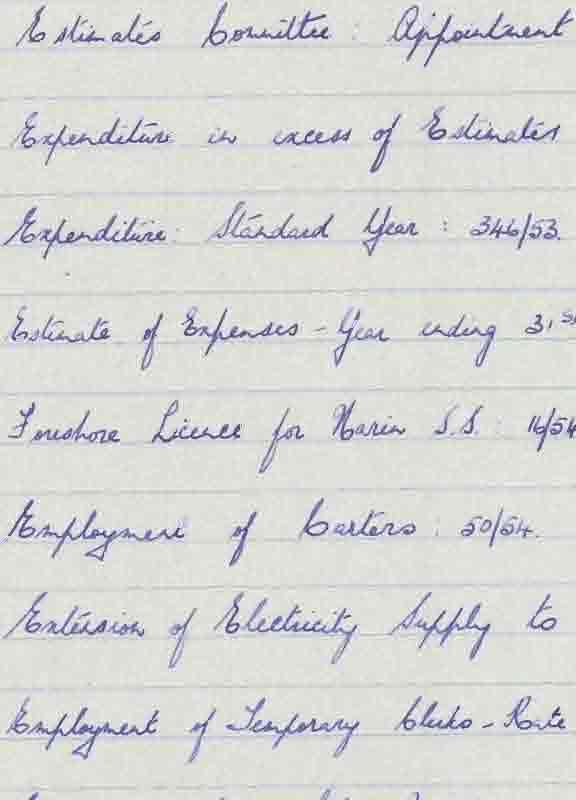 Estimates Committee : Appointment
Expenditure in excess of Estimates
Expenditure: Standard Year : 346/53.
Estimate of Expenses - Year ending 31st
Foreshore Licence for Narin S.S. : 16/54
Employment of Carters : 50/54.
Extension of Electricity Supply to
Employment of Temporary Clerks - Rate